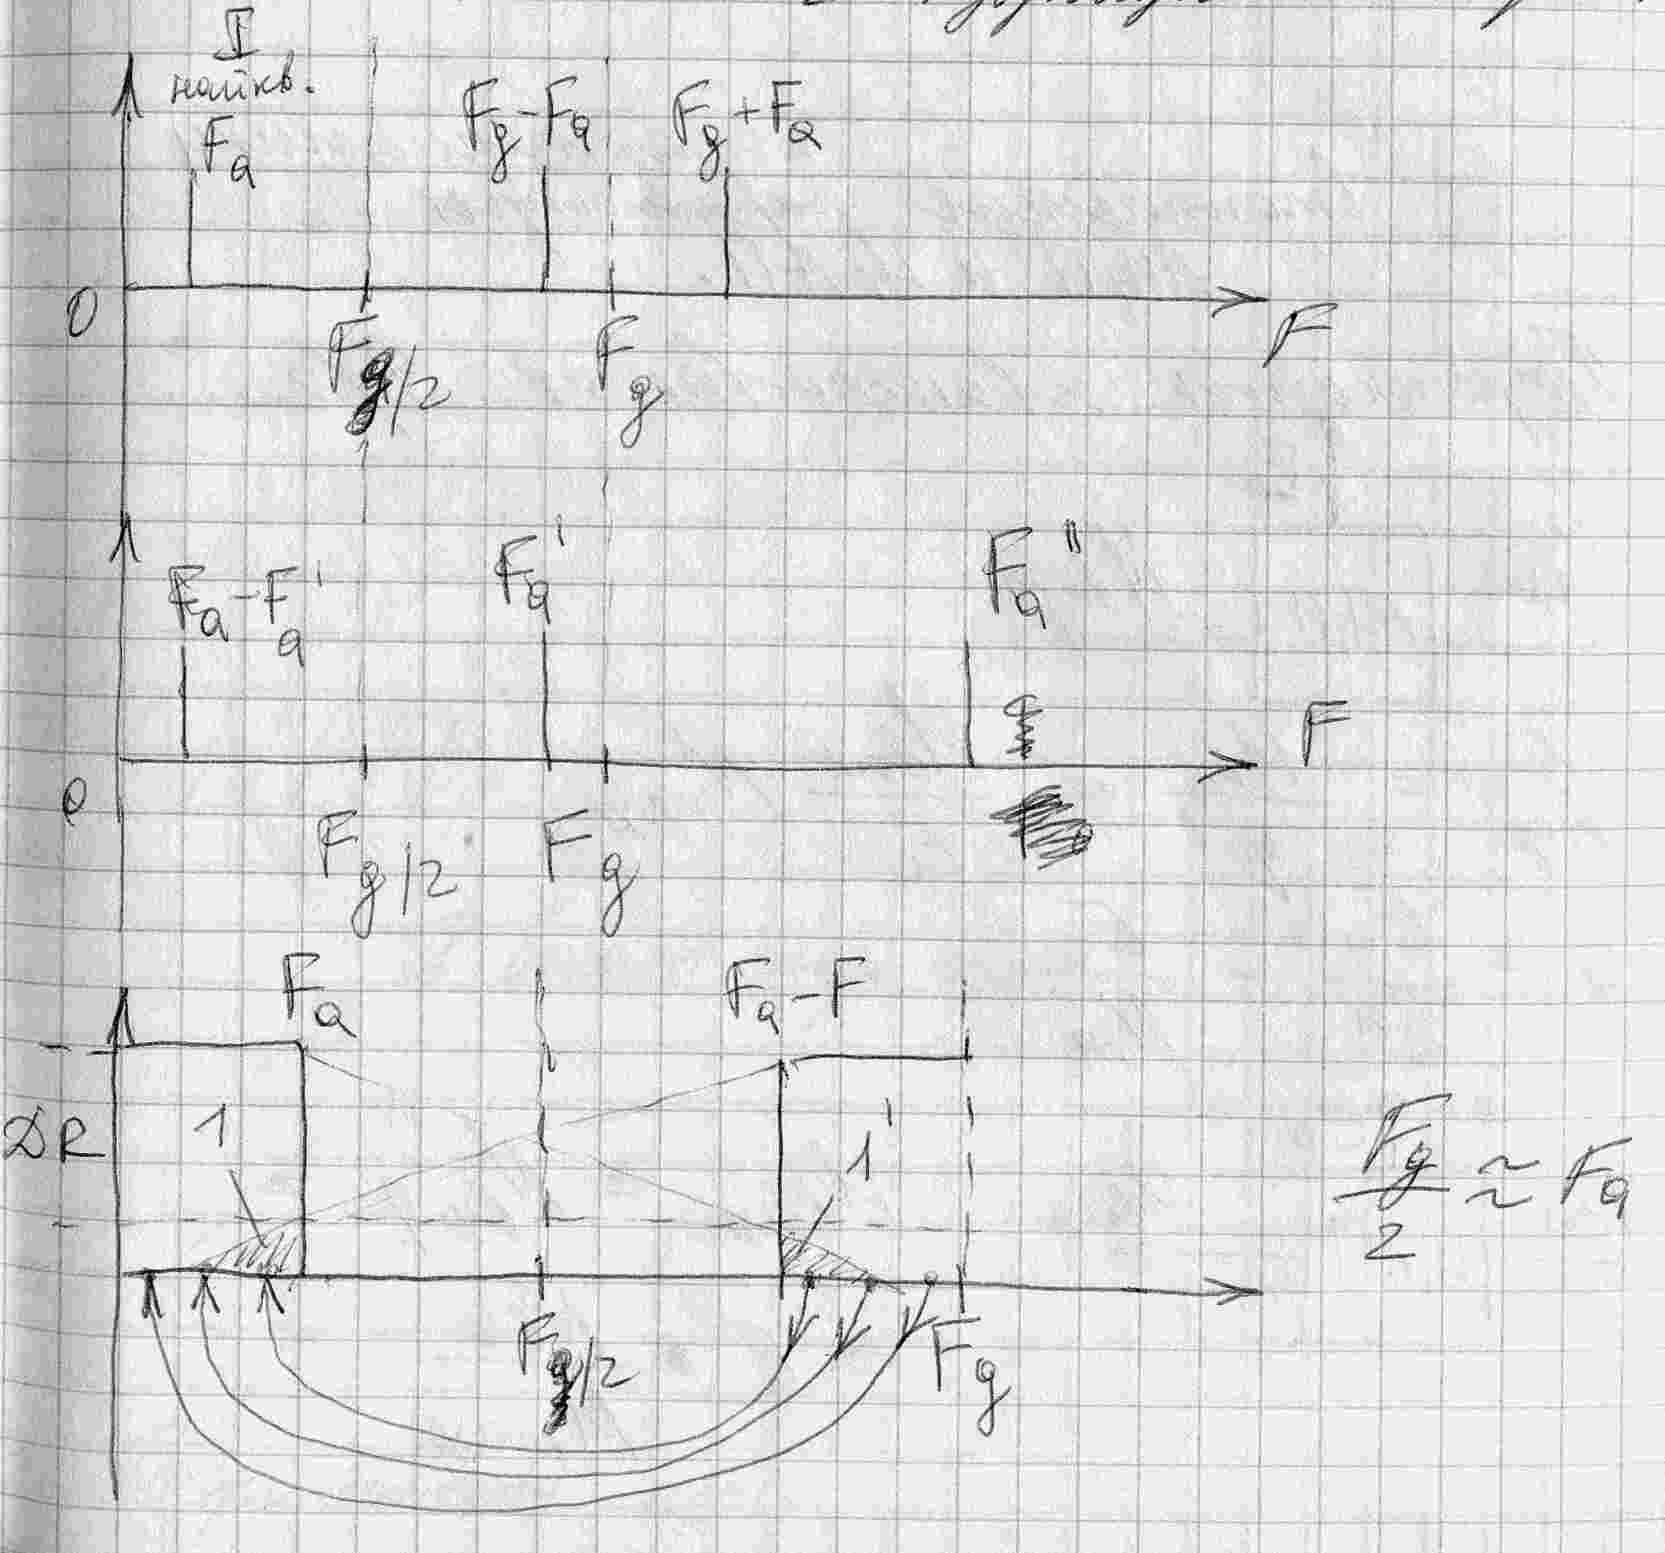 I
найкв.
Fa
Fg-Fa
Fg+Fa
0
Fg/2
Fg
F
Fa-Fa'
Fa'
Fa"
F
0
Fg/2
Fg
Fa
Fa-F
DR
1
1'
Fg/2 ≈ Fa
Fg/2
Fg